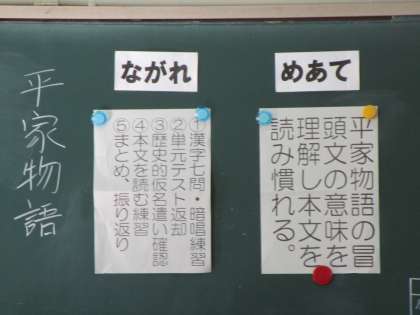 めあて
平家物語の冒
頭文の意味を
理解し本文を
読み慣れる。
ながれ
①漢字七問・暗唱練習
②単元テスト返却
③歴史的仮名遣い確認
④本文を読む練習
⑤まとめ、振り返り
平家物語